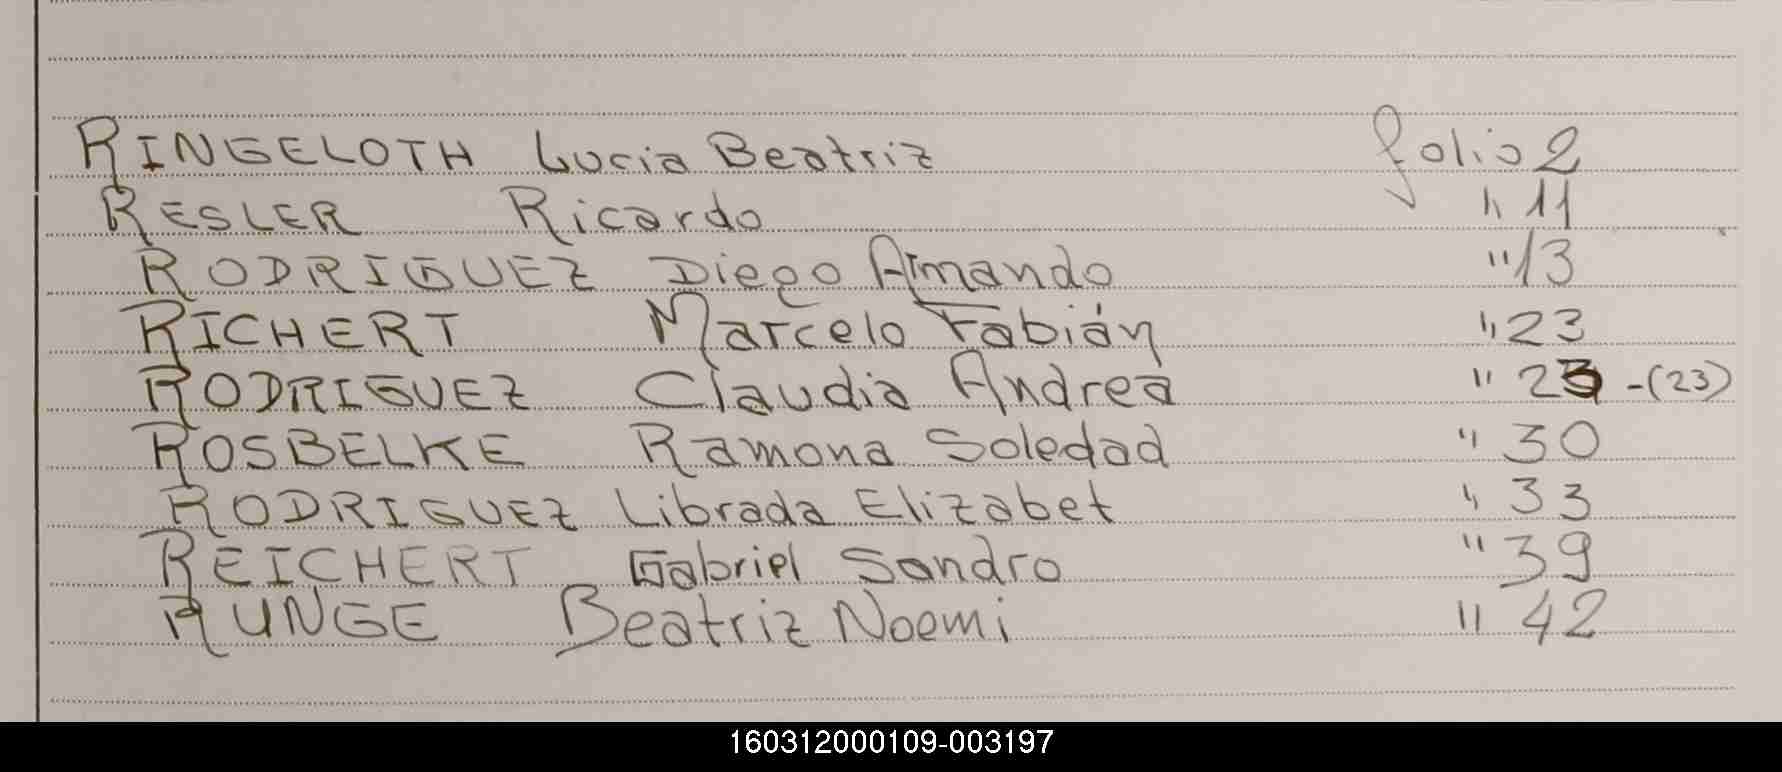 RINGELOTH Lucia Beatriz folio 2
RESLER Ricardo " 11
RODRIGUEZ Diego Armando " 13
RICHERT Marcelo Fabián " 23
RODRIGUEZ Claudia Andrea " 23 -(23)
ROSBELKE Ramona Soledad " 30
RODRIGUEZ Librada Elizabet " 33
REICHERT Gabriel Sandro " 39
RUNGE Beatriz Noemi " 42
160312000109-003197